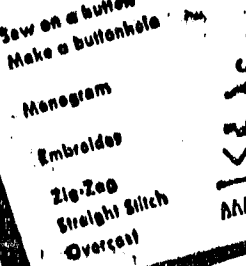 Sew on a button
Make a buttonhole
Monogram
Embroider
Zig-Zag
Straight Stitch
Overcast